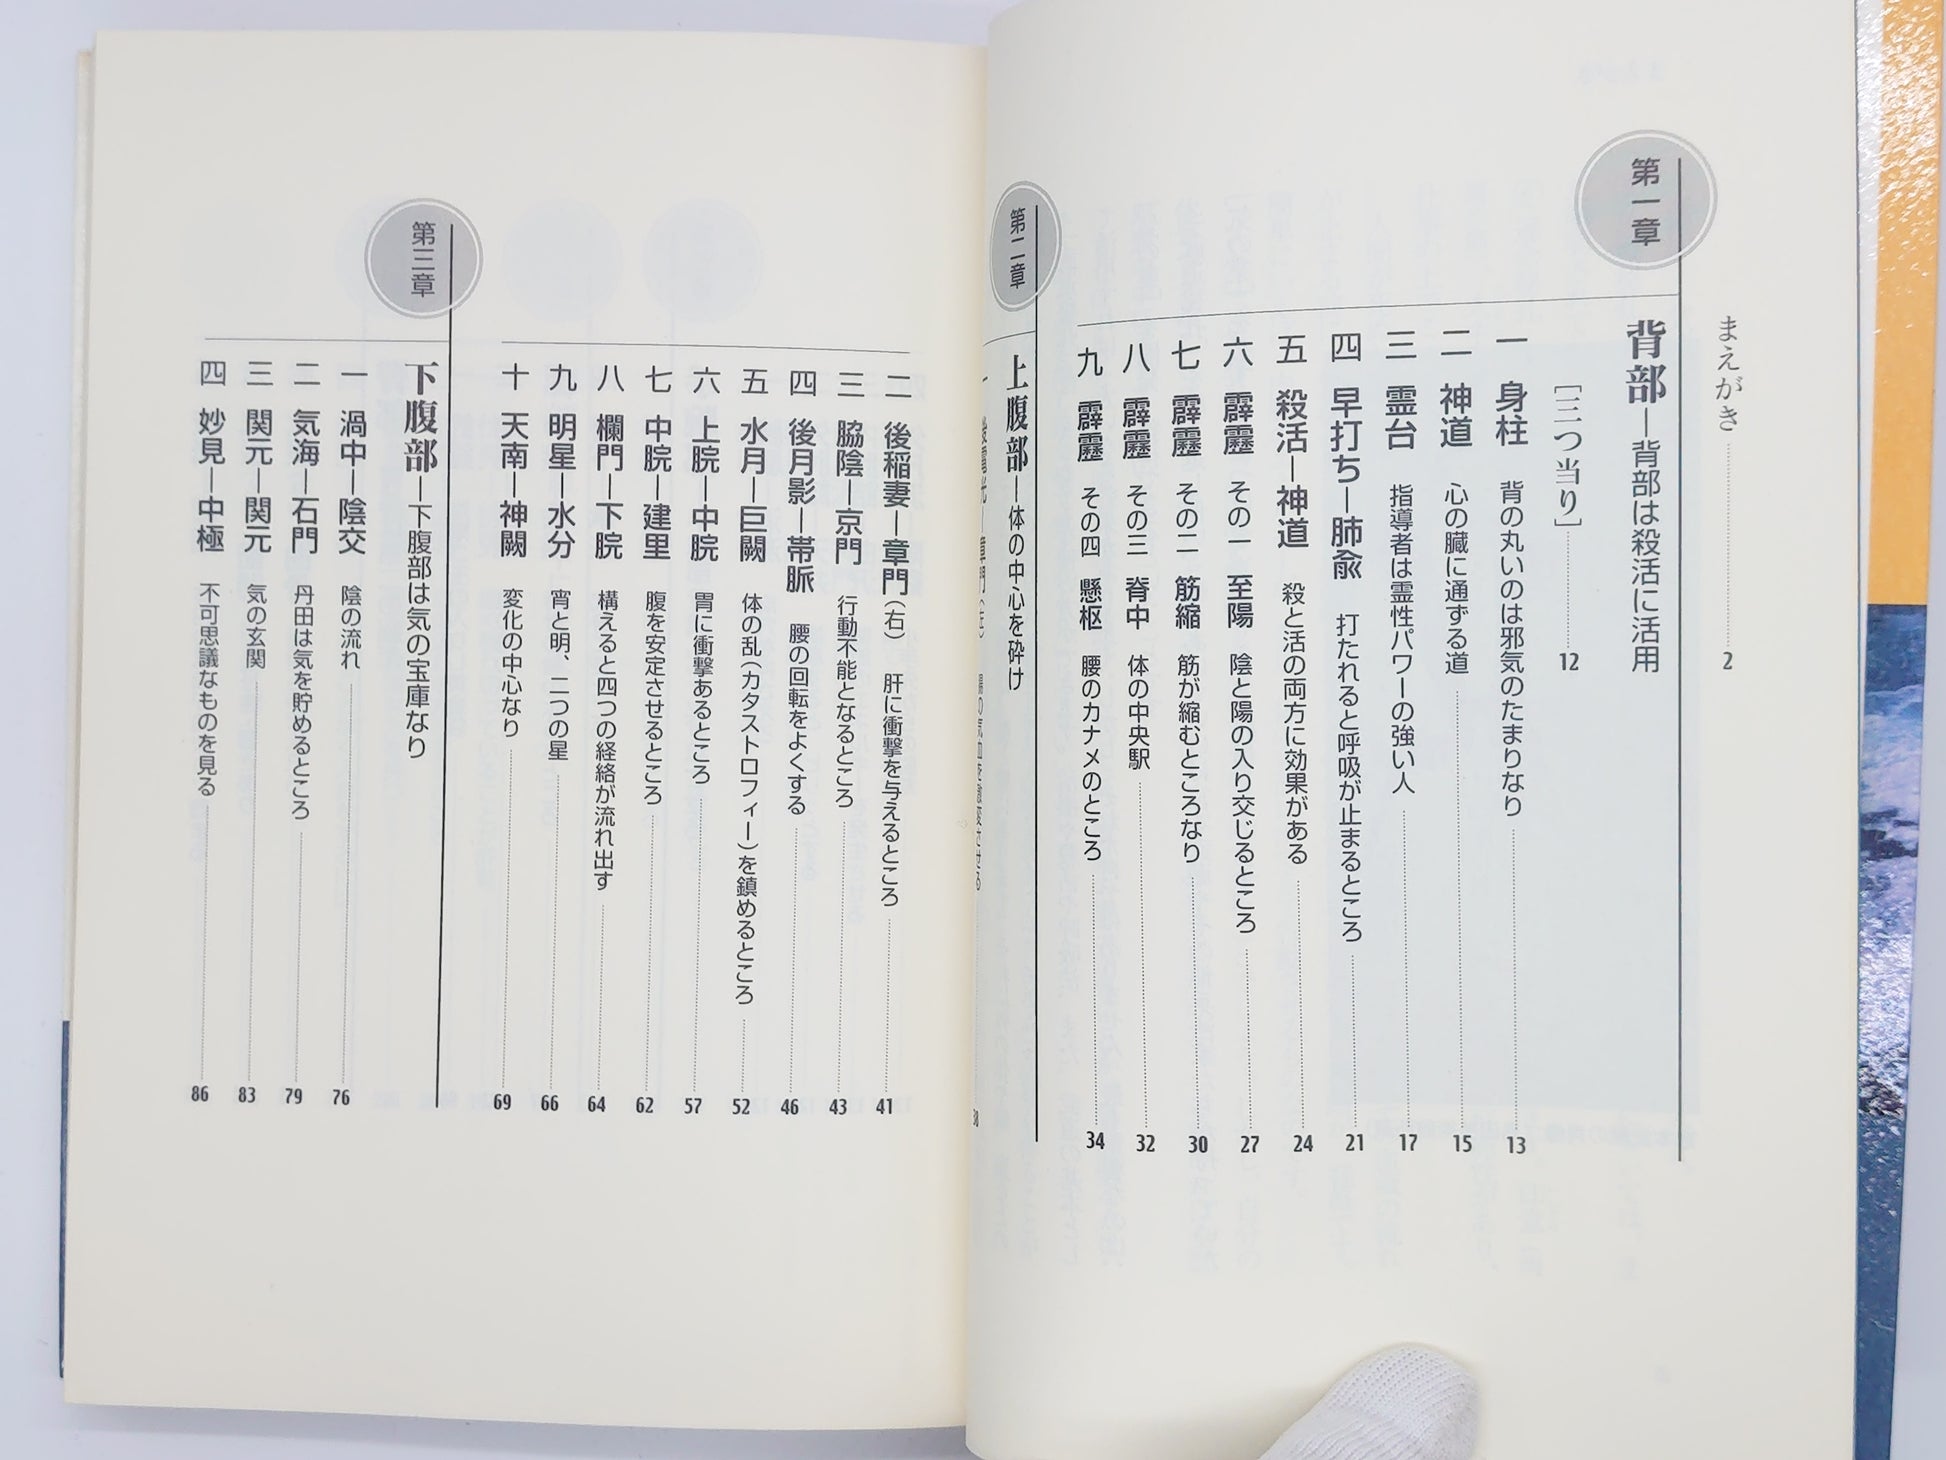 まえがき 2
第一章
背部―背部は殺活に活用
［三つ当り］ 12
一 身柱 背の丸いのは邪気のたまりなり 13
二 神道 心の臓に通ずる道 15
三 霊台 指導者は霊性パワーの強い人 17
四 早打ち―肺兪 打たれると呼吸が止まるところ 21
五 殺活―神道 殺と活の両方に効果がある 24
六 霹靂 その一 至陽 陰と陽の入り交じるところ 27
七 霹靂 その二 筋縮 筋が縮むところなり 30
八 霹靂 その三 脊中 体の中央駅 32
九 霹靂 その四 懸枢 腰のカナメのところ 34
第二章
上腹部―体の中心を砕け
章門（左）
二 後稲妻―章門（右） 肝に衝撃を与えるところ 41
三 脇陰―京門 行動不能となるところ 43
四 後月影―帯脈 腰の回転をよくする 46
五 水月―巨闕 体の乱（カタストロフィー）を鎮めるところ 52
六 上院―中院 胃に衝撃あるところ 57
七 中院―建里 腹を安定させるところ 62
八 欄門―下院 構えると四つの経絡が流れ出す 64
九 明星―水分 宵と明、二つの星 66
十 天南―神闕 変化の中心なり 69
第三章
下腹部―下腹部は気の宝庫なり
一 渦中―陰交 陰の流れ 76
二 気海―石門 丹田は気を貯めるところ 79
三 関元―関元 気の玄関 83
四 妙見―中極 不可思議なものを見る 86